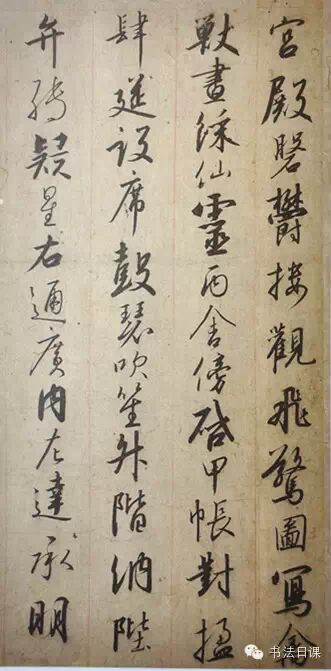 宮殿磐欝樓觀飛驚圖寫禽
獸畫綵仙靈丙舍傍啓甲帳對楹
肆筵設席鼓瑟吹笙升階納陛
弁轉疑星右通廣內左達承明
书法日课